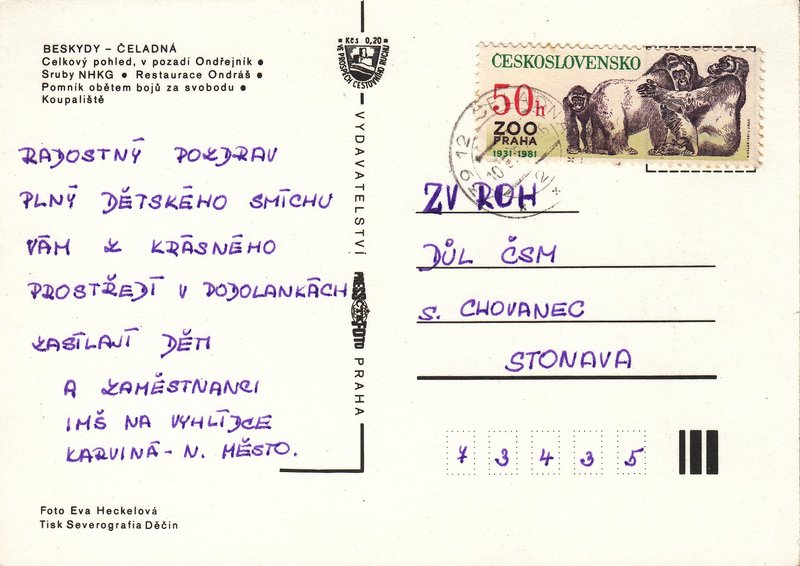 BESKYDY – ČELADNÁ
Celkový pohled, v pozadí Ondřejník ●
Sruby NHKG ● Restaurace Ondráš ●
Pomník obětem bojů za svobodu ●
Koupaliště
RADOSTNÝ POZDRAV
PLNÝ DĚTSKÉHO SMÍCHU
VÁM Z KRÁSNÉHO
PROSTŘEDÍ V PODOLANKÁCH
ZASÍLAJÍ DĚTI
A ZAMĚSTNANCI
IMŠ NA VYHLÍDCE
KARVINÁ - N. MĚSTO.
Foto Eva Heckelová
Tisk Severografia Děčín
Kčs 0,20
VE PROSPĚCH CESTOVNÍHO RUCHU
VYDAVATELSTVÍ
PRESSFOTO
PRAHA
ČESKOSLOVENSKO
50h
ZOO
PRAHA
1931-1981
739 12 ČELADNÁ
ZV ROH
DŮL ČSM
S. CHOVANEC
STONAVA
7 3 4 3 5